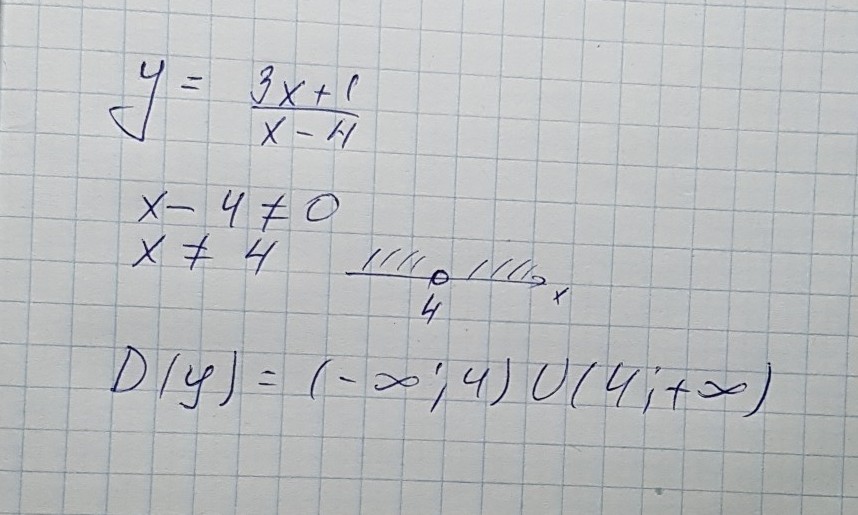 y = (3x+1)/(x-4)
x - 4 ≠ 0
x ≠ 4
4 x
D(y) = (-∞; 4) ∪ (4; +∞)